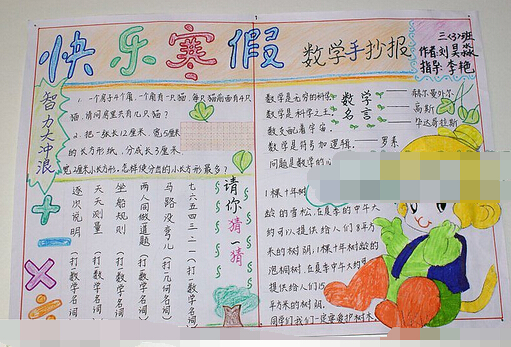 快乐寒假
数学手抄报
三〈3〉班
作者:刘昊淼
指导:李艳
智力大冲浪
1. 一个房子4个角,一个角有一只猫,每只猫前面有4只
猫,请问房里共有几只猫?
2. 把一张长12厘米,宽5厘米
的长方形纸,分成长3厘米
宽2厘米小长方形,怎样使分出的小长方形最多?
请你猜一猜
七六五四三二一(打一数学名词)
马路没弯儿(打几何名词)
两人同做道题(打一数学名词)
坐船规则(打一数学名词)
天天测量(打数学名词)
逐次说明(打一数学名词)
数学名言
数学是无穷的科学——赫尔曼外尔
数学是科学之王——高斯
数支配着宇宙。——毕达哥拉斯
数学是符号加逻辑。——罗素
问题是数学的心
1棵十年树
龄的雪松,在夏季的中午大
约可以提供给人们8平方
米的树阴,1棵十年树龄的
泡桐树,在夏季中午大约
提供给人们15
平方米的树阴,
同学们我们一定要爱护树木